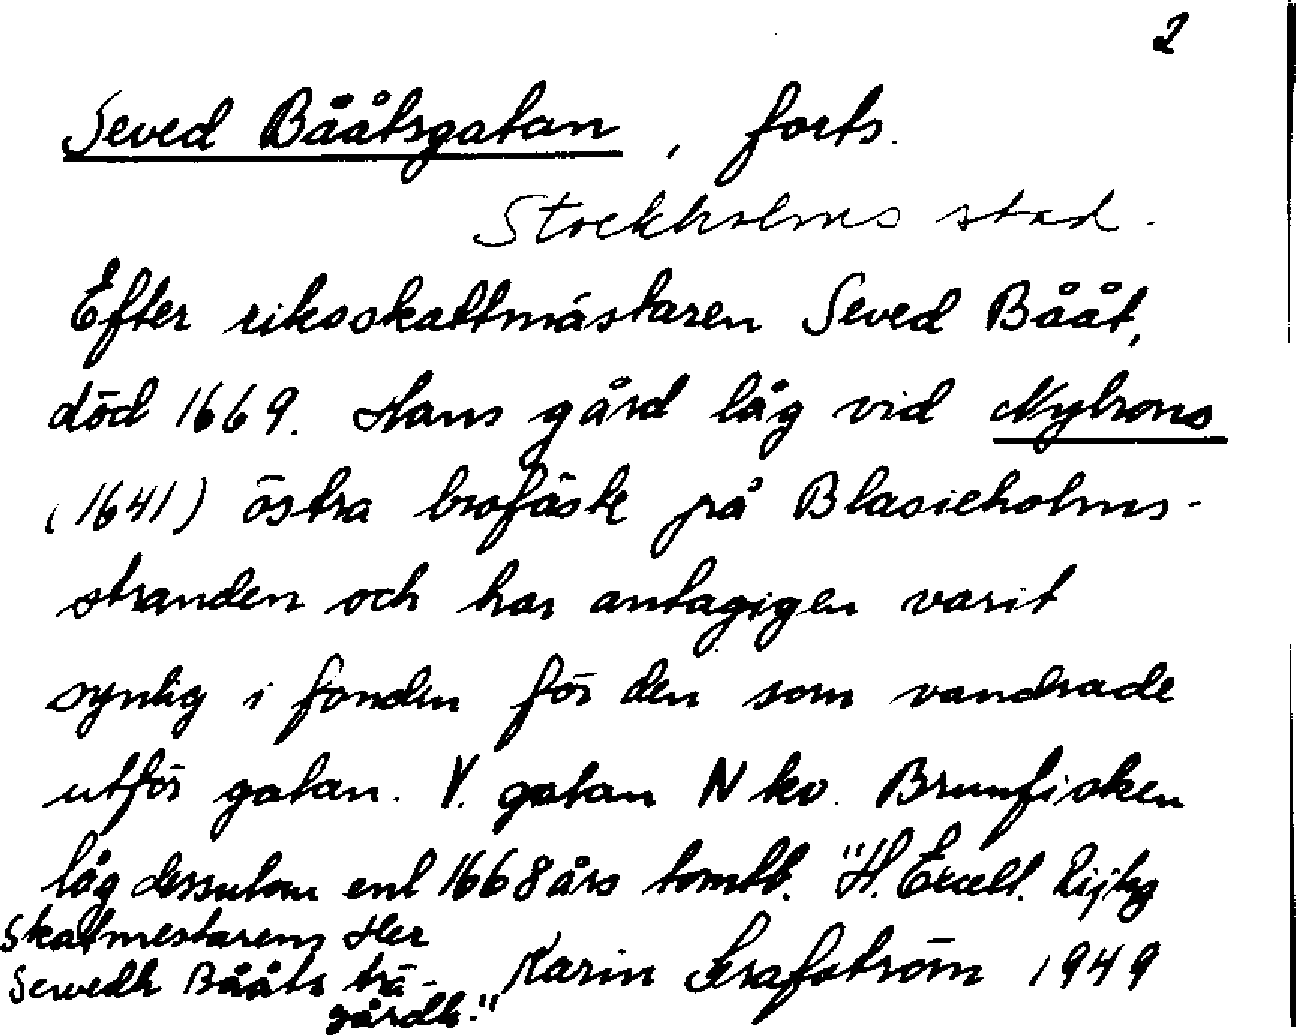 2
Seved Bååtsgatan, forts.
Stockholms stad.
Efter riksskattmästaren Seved Bååt,
död 1669. Hans gård låg vid Nybrons
(1641) östra brofäste på Blasieholms-
stranden och har antagigen varit
synlig i fonden för den som vandrade
utför gatan. V. gatan N kv. Brunfisken
låg dessutom enl 1668 års tomtb. "H. Excell. Rijkz
Skatmestarens Her
Sewedh Bååts trä-
gårdh."
Karin Skrafström 1949